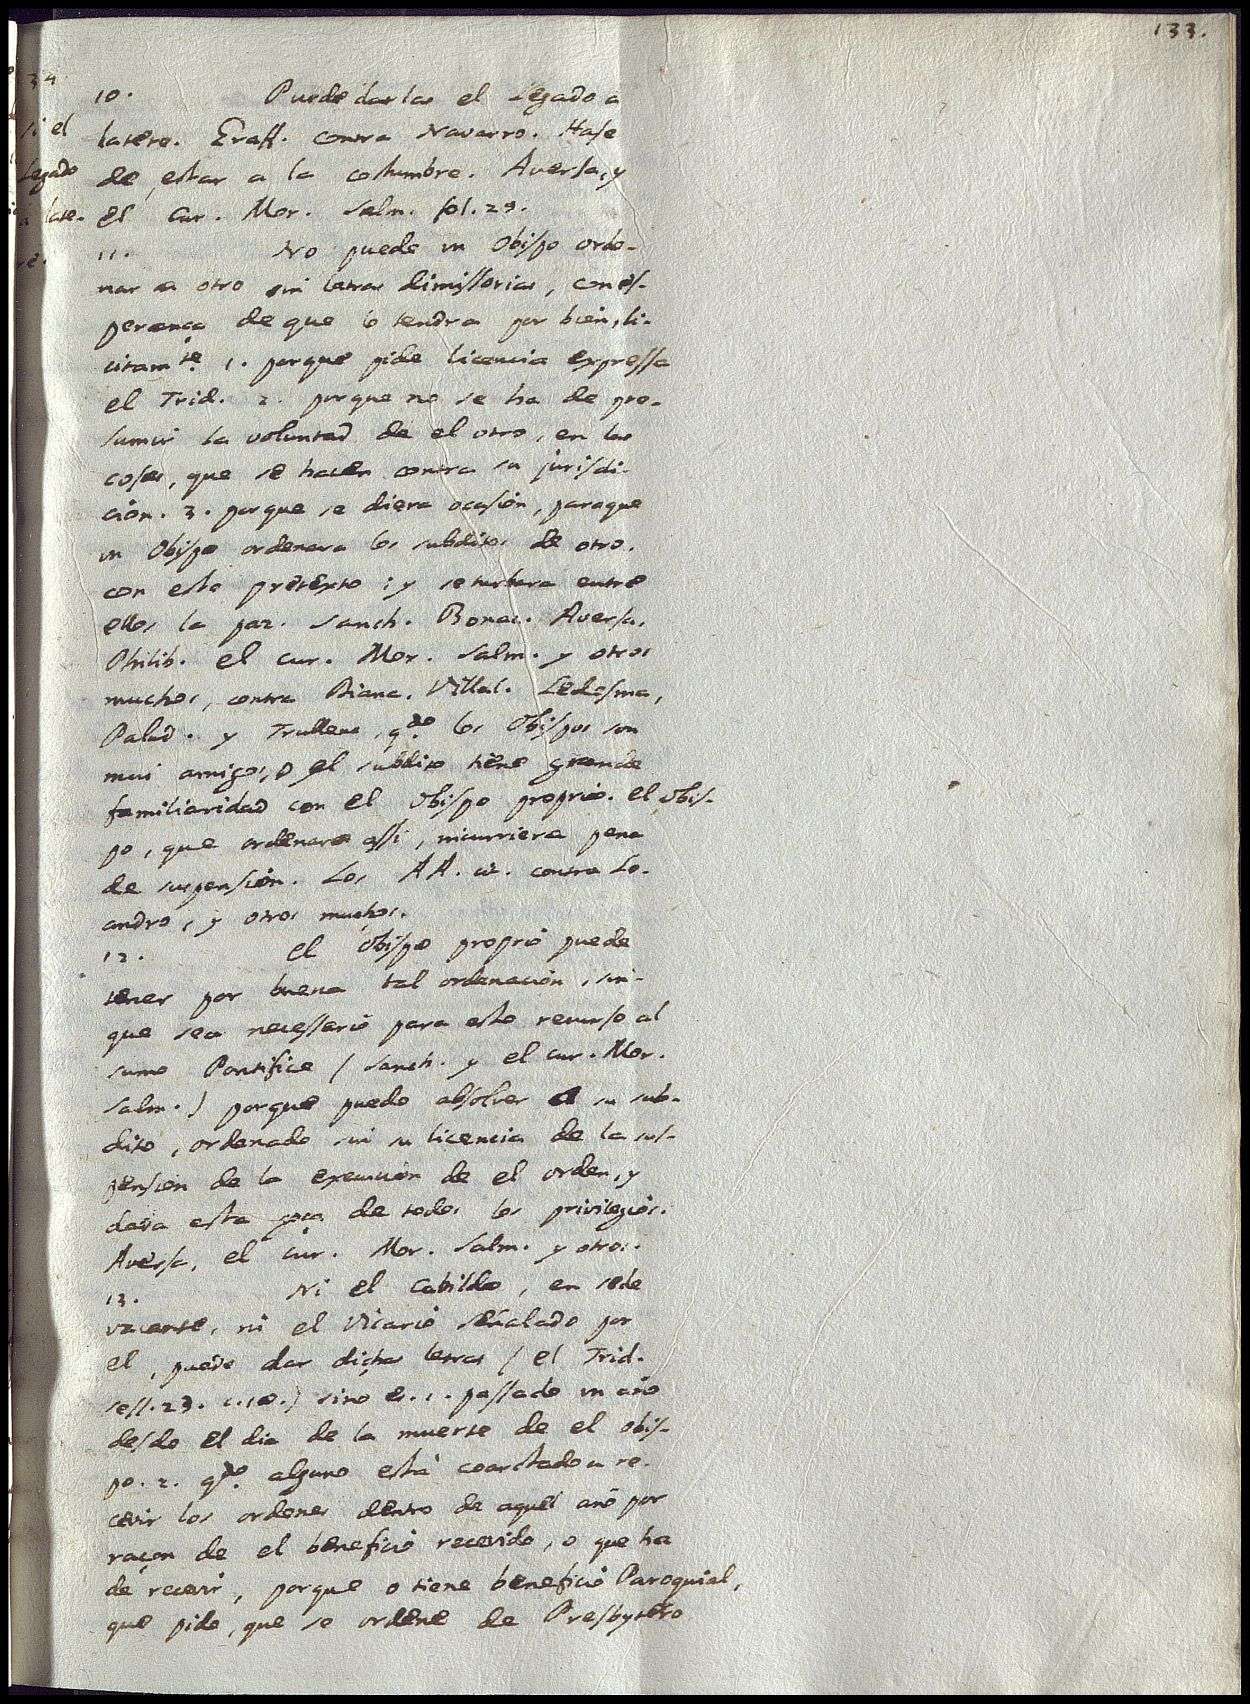 133.
10. Puede darlas el Legado a
latere. Graff. contra Navarro. Hase
de estar a la costumbre. Aversa, y
el Cur. Mor. Salm. fol. 29.
11. No puede un Obispo orde-
nar a otro sin letras dimissorias, con es-
perança de que lo tendra por bien, li-
citamte. 1. porque pide licencia expressa
el Trid. 2. porque no se ha de pre-
sumir la voluntad de el otro, en las
cosas, que se hacen contra su jurisdi-
ción. 3. porque se diera ocasión, paraque
un Obispo ordenara los subditos de otro.
con este pretexto: y se turbara entre
ellos la paz. Sanch. Bonac. Aversa.
Philib. el cur. Mor. Salm. y otros
muchos, contra Diana. Villal. Ledesma,
Palud. y Trullenc. qdo. los Obispos son
mui amigos, o el subdito tiene grande
familiaridad con el Obispo proprio. el Obis-
po, que ordenara assi, incurriera pena
de suspensión. Los AA. cit. contra Le-
andro, y otros muchos.
12. el Obispo proprio puede
tener por buena tal ordenación, sin-
que sea necessario para esto recurso al
sumo Pontifice (Sanch. y el cur. Mor.
Salm.) porque puede absolver a su sub-
dito, ordenado sin su licencia de la sus-
pensión de la execución de el orden, y
deva este goça de todos los privilegios.
Aversa, el cur. Mor. Salm. y otros.
13. Ni el Cabildo, en sede
vacante, ni el Vicario señalado por
el, puede dar dichas letras (el Trid.
sess. 23. c. 10.) sino es. 1. passado un año
desde el dia de la muerte de el Obis-
po. 2. qdo. alguno está coarctado a re-
cevir los ordenes dentro de aquel año por
raçon de el beneficio recevido, o que ha
de recevir, porque o tiene beneficio Paroquial,
que pide, que se ordene de Presbytero
34
si el
Legado
a late-
re.